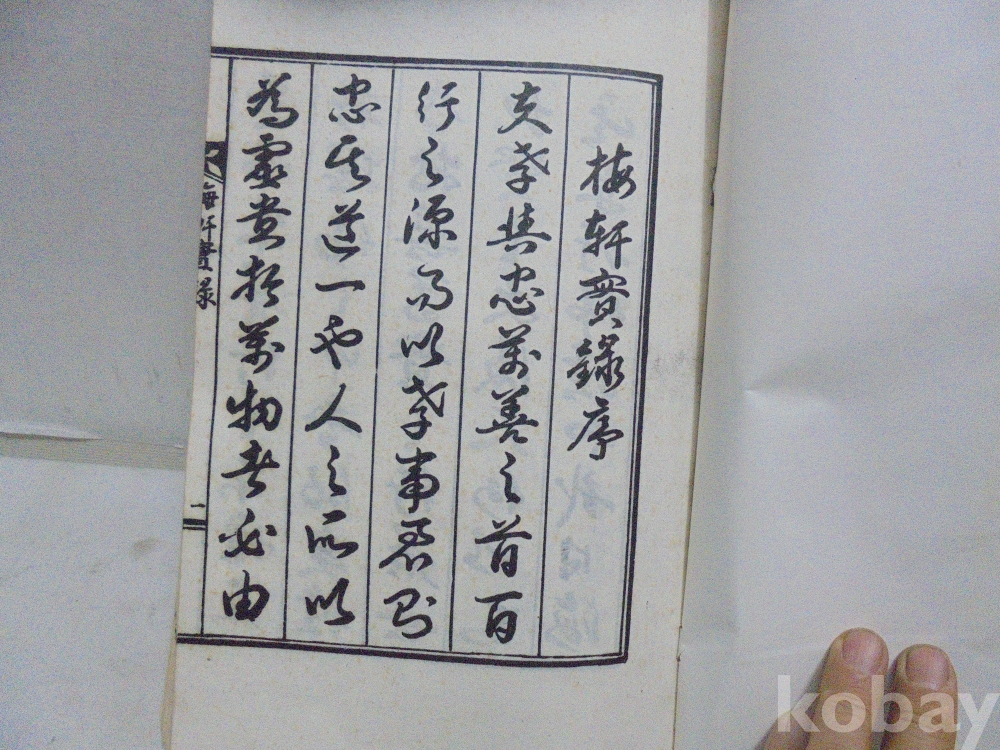 梅軒實錄序
夫孝與忠萬善之首百
行之源而以孝事君則
忠其道一也人之所以
為靈貴於萬物者必由
梅軒實錄
一
kobay